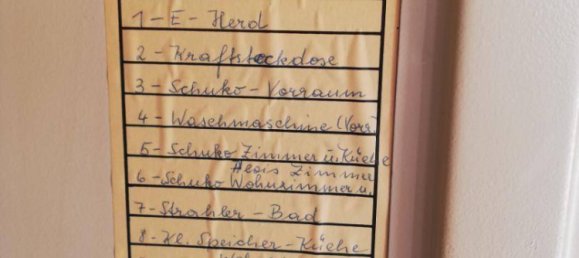 1 - E - Herd
2 - Kraftsteckdose
3 - Schuko - Vorraum
4 - Waschmaschine (Vorr)
5 - Schuko Zimmer u. Küche
Alois Zimmer
6 - Schuko Wohnzimmer u.
7 - Strahler - Bad
8 - Kl. Speicher - Küche